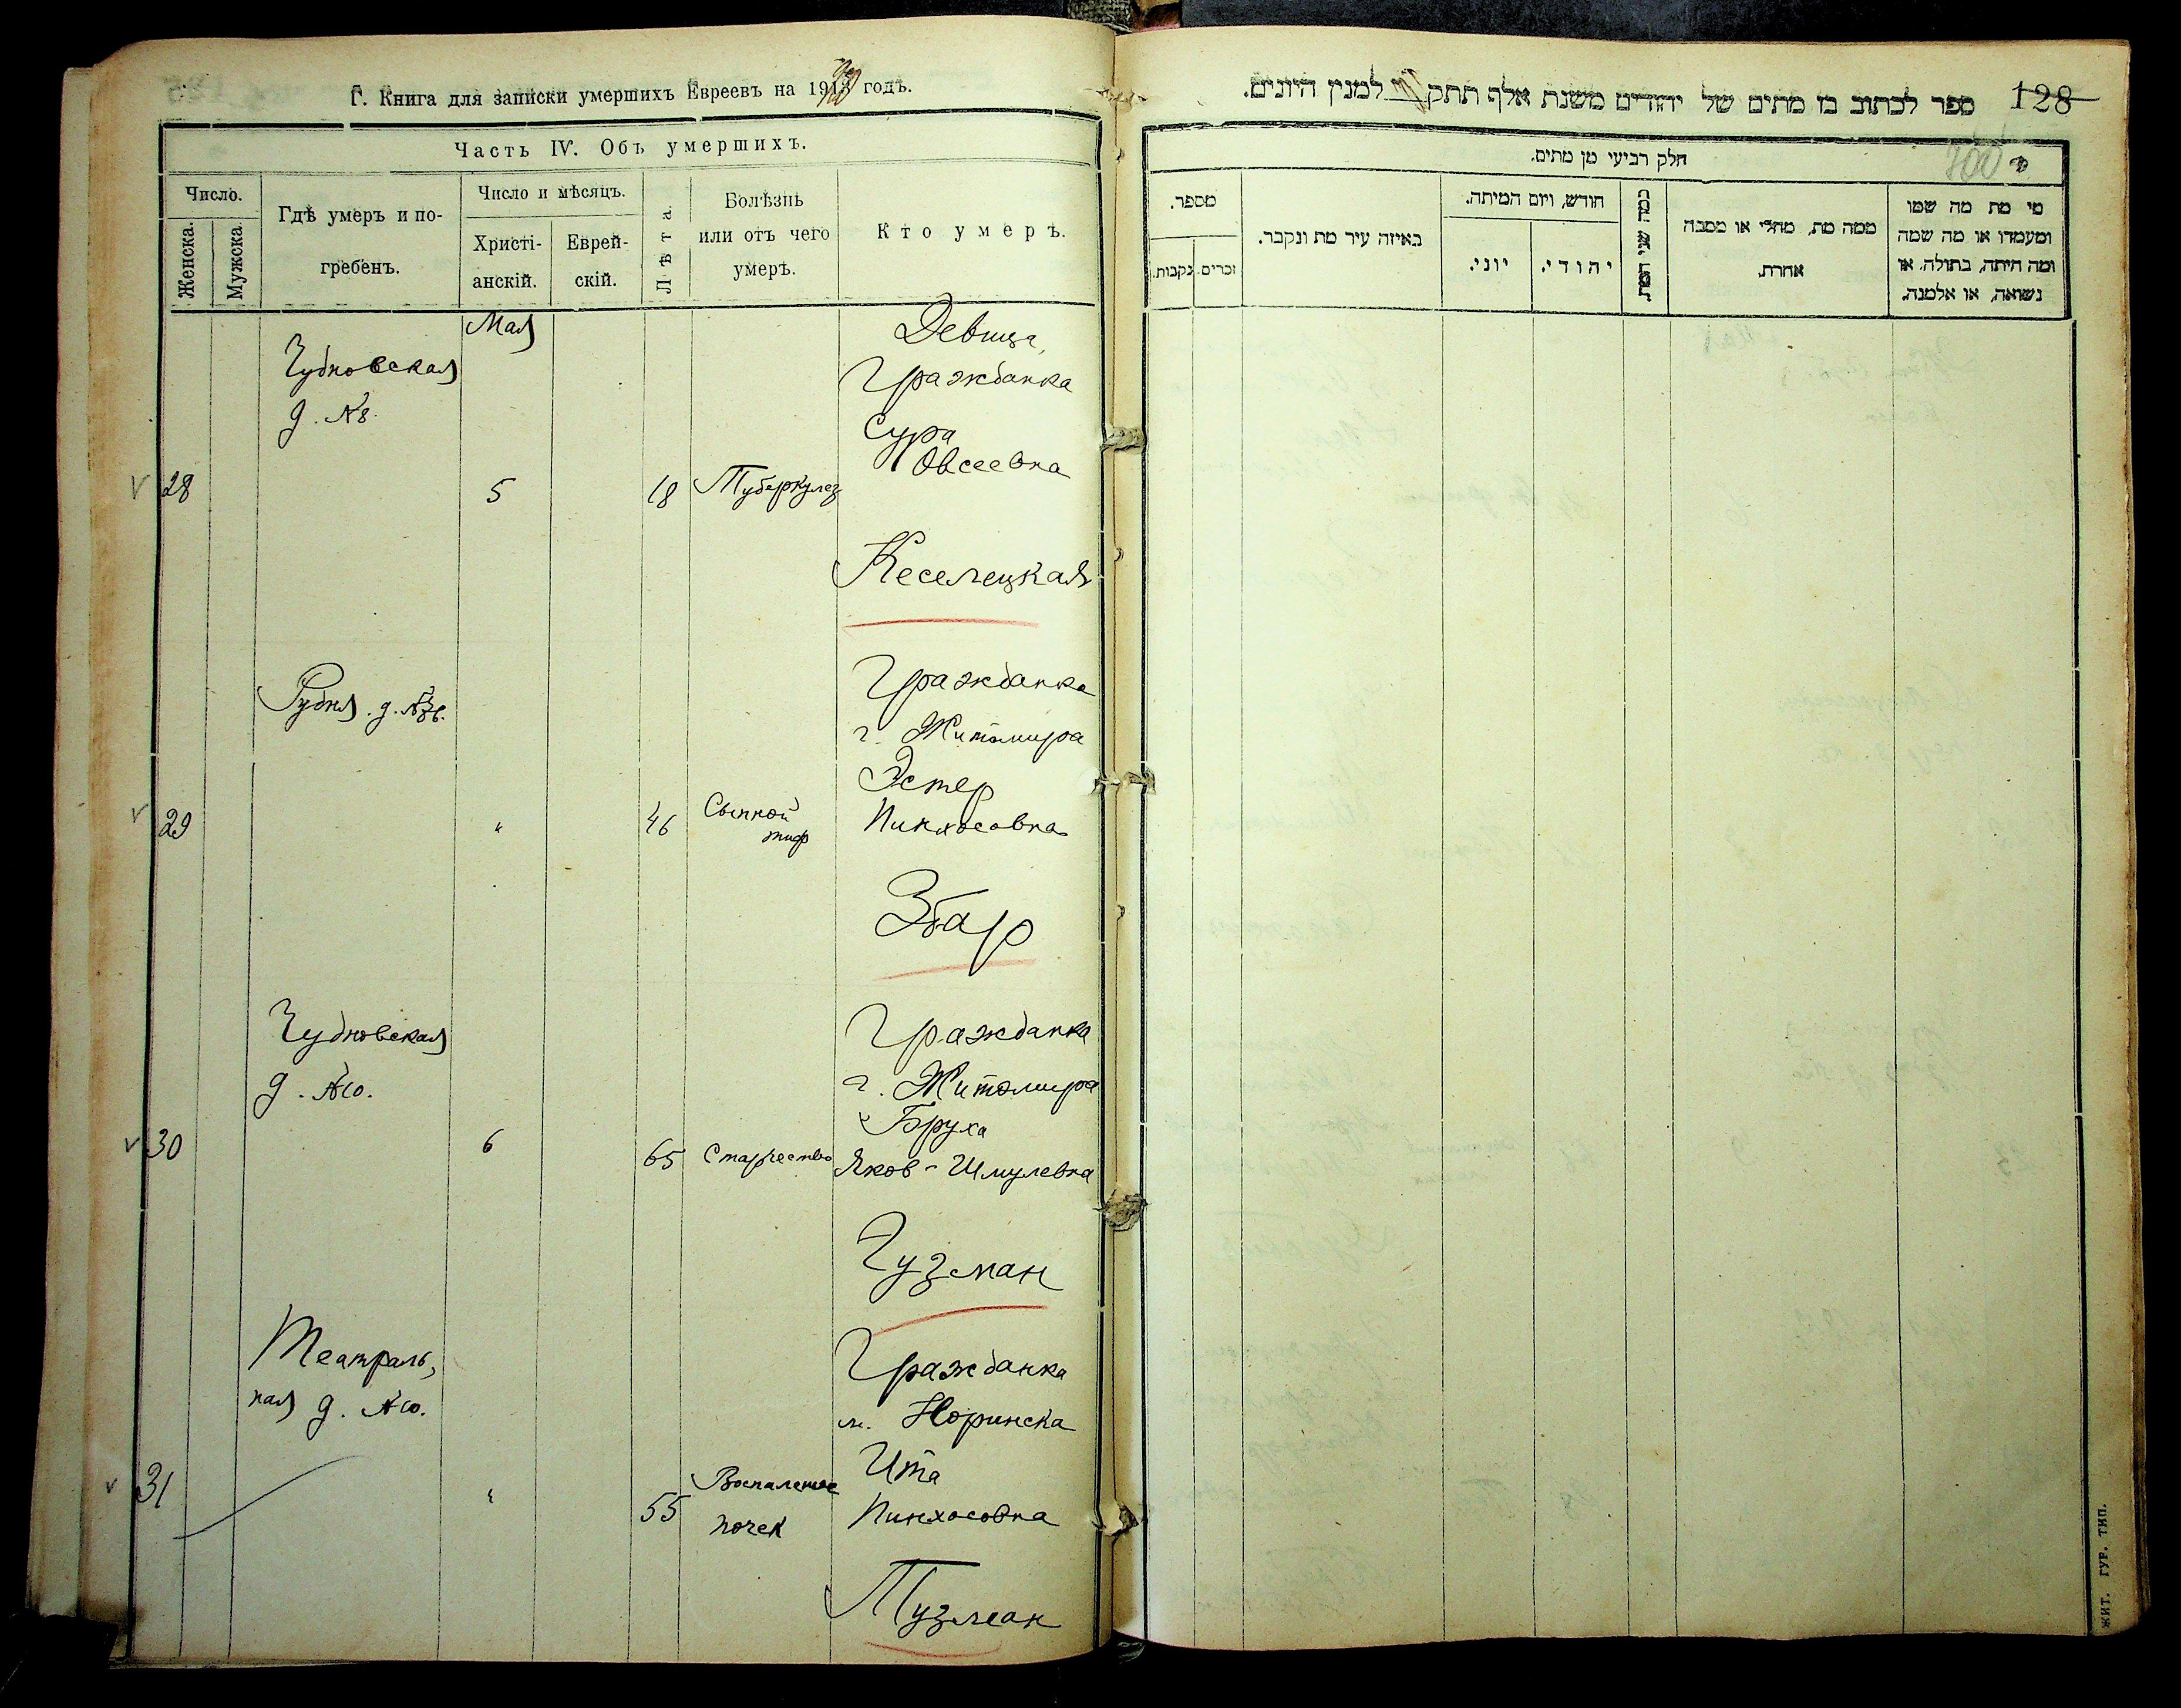 Г. Книга для записки умершихъ Евреевъ на 191 годъ.
Часть IV. Объ умершихъ.
Число.
Женска.
Мужска.
Гдѣ умеръ и по-
гребенъ.
Число и мѣсяцъ.
Христі-
анскій.
Еврей-
скій.
Лѣта.
Болѣзнь
или отъ чего
умеръ.
Кто умеръ.
Мая
Чудновская
д. №8.
28
5
18
Туберкулез
Девица,
Гражданка
Сура
Овсеевна
Кеселецкая
Рудня. д. №
29
"
46
Сыпной
тиф
Гражданка
г. Житомира
Эстер
Пинхосовна
Збар
Чудновская
д. №10.
30
6
65
Старчество
Гражданка
г. Житомира
Бруха
Яков-Шмулевна
Гузман
Театраль,
ная д. №10.
31
"
55
Воспаление
почек
Гражданка
м. Норинска
Ита
Пинхосовна
Тузман
ספר לכתוב בו מתים של יהודים משנת אלף תתק למנין היונים.
128
חלק רביעי מן מתים.
100
מספר.
נקבות.
זכרים.
באיזה עיר מת ונקבר.
חודש, ויום המיתה.
יוני.
יהודי.
כמה שני המת
ממה מת, מחלי או מסבה
אחרת.
מי מת מה שמו
ומעמדו או מה שמה
ומה היתה, בתולה, או
נשואה, או אלמנה.
ЖИТ. ГУБ. ТИП.